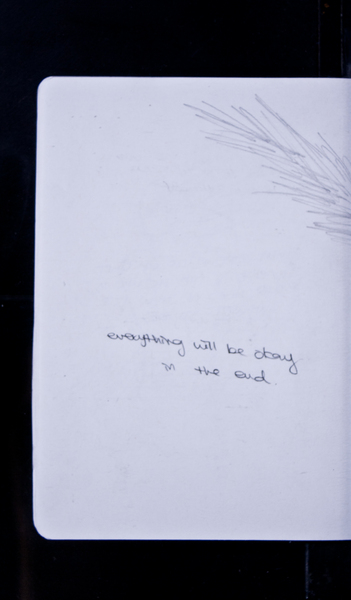 everything will be okay
in the end.